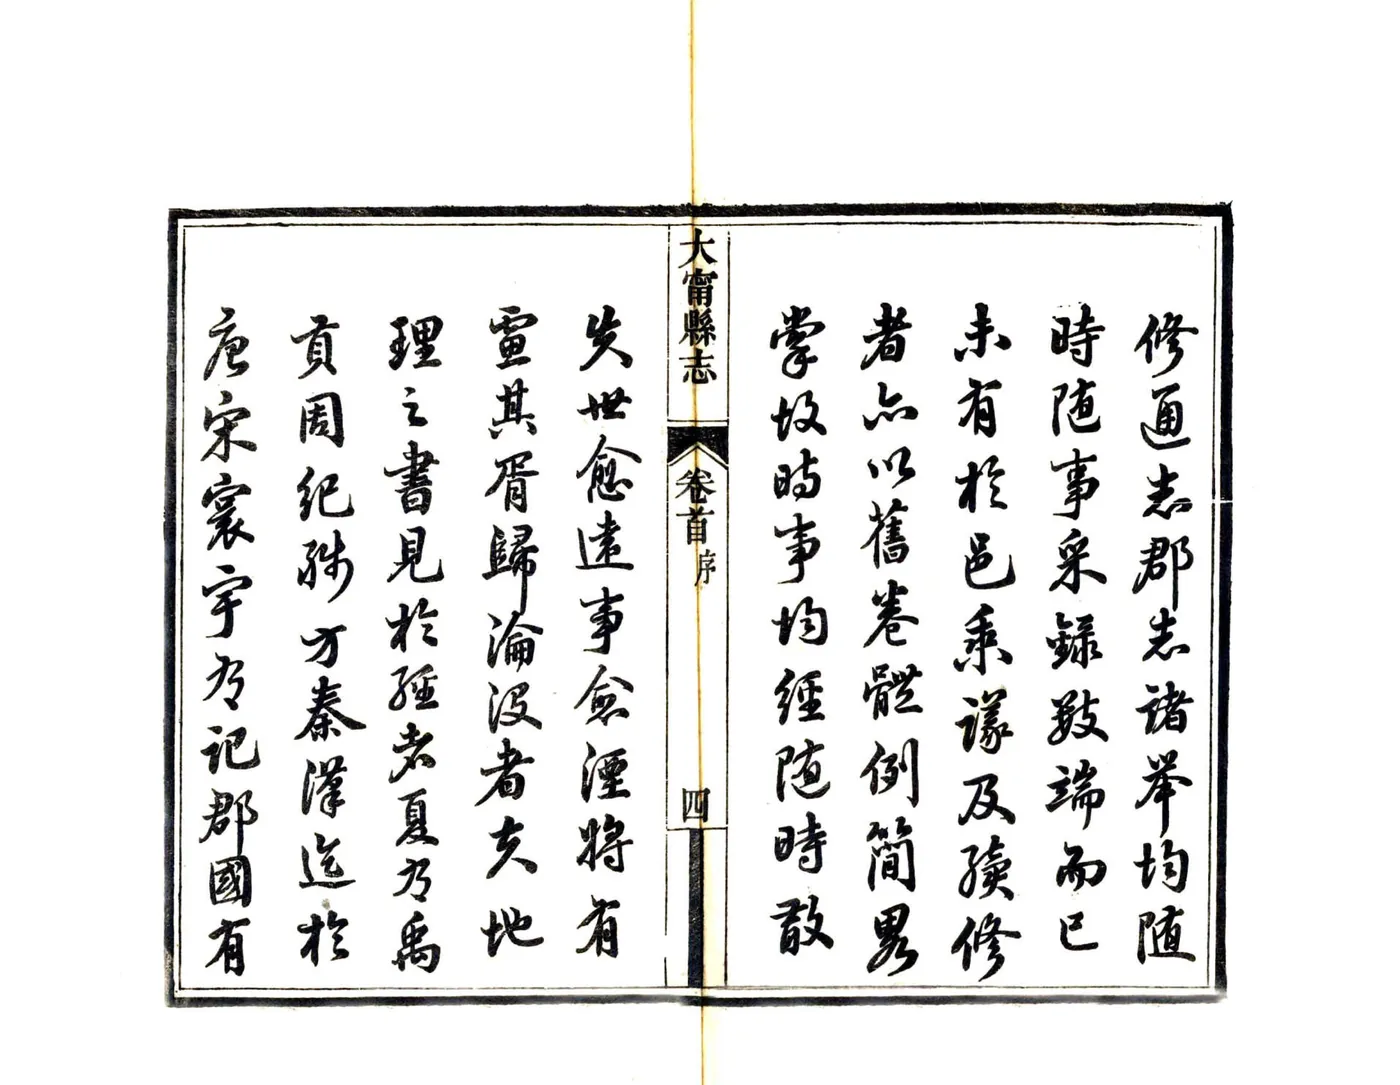 修通志郡志諸舉均随
時随事采錄數端而已
未有於邑乘議及續修
者亦以舊卷體例簡畧
掌故時事均經随時散
大甯縣志
卷首
序
四
失世愈遠事愈湮將有
靈其胥歸淪没者夫地
理之書見於經者夏有禹
貢周紀職方秦漢迄於
唐宋寰宇有記郡國有